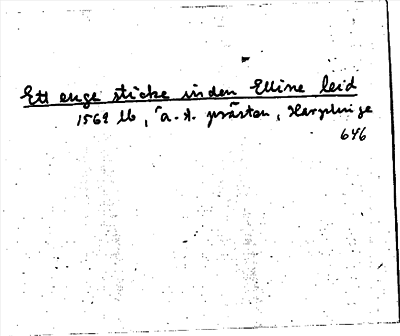 Ett enge sticke inden Elline leid
1562 lb, a. t. prästen, Harplinge
646